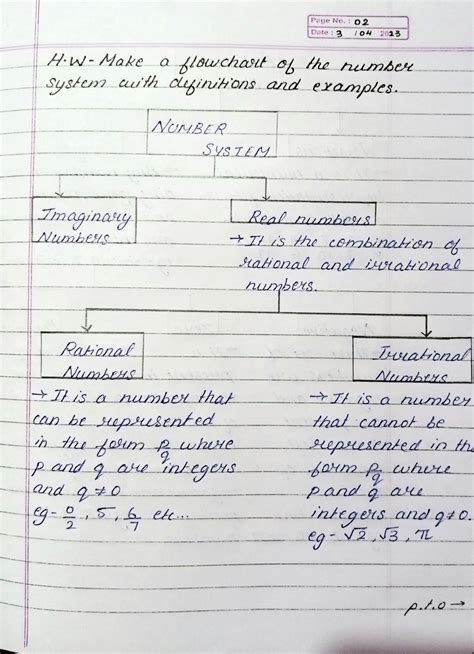 Page No.: 02
Date: 3 / 04 2023
H.W- Make a flowchart of the number
system with definitions and examples.
NUMBER
SYSTEM
Imaginary
Numbers
Real numbers
→ It is the combination of
rational and irrational
numbers.
Rational
Numbers
→ It is a number that
can be represented
in the form p/q where
p and q are integers
and q ≠ 0
eg- 0/2, 5, 6/7 etc...
Irrational
Numbers
→ It is a number
that cannot be
represented in the
form p/q where
p and q are
integers and q ≠ 0.
eg- √2, √3, π
p.t.o →